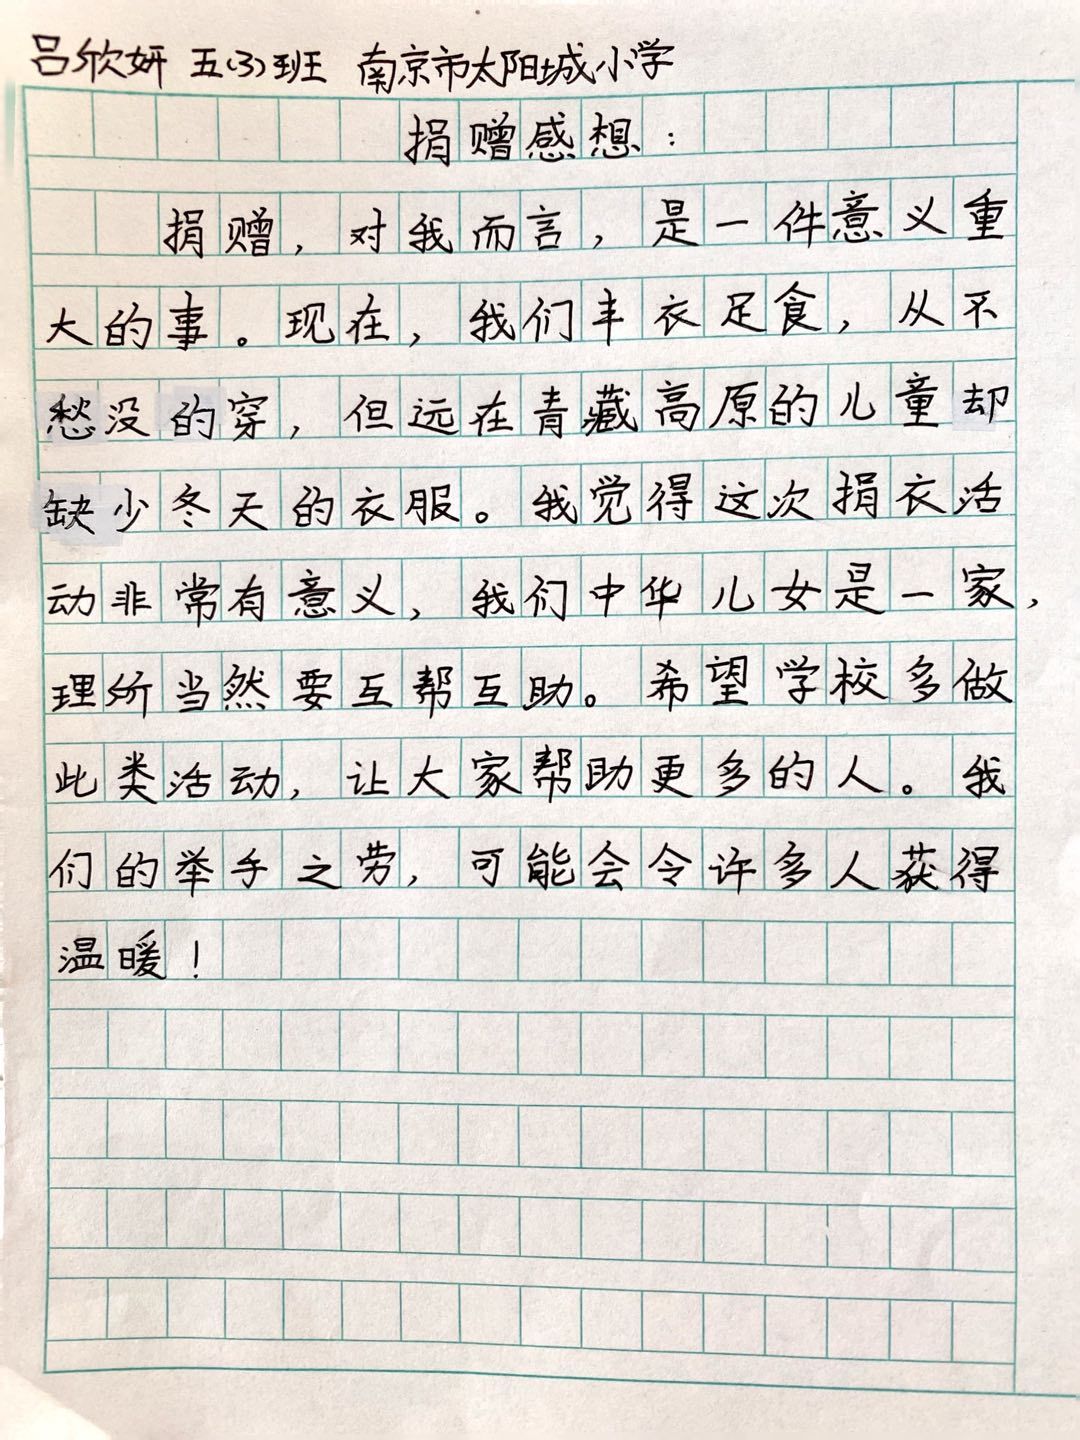 吕欣妍 五(3)班 南京市太阳城小学
捐赠感想：
捐赠，对我而言，是一件意义重
大的事。现在，我们丰衣足食，从不
愁没的穿，但远在青藏高原的儿童却
缺少冬天的衣服。我觉得这次捐衣活
动非常有意义，我们中华儿女是一家，
理所当然要互帮互助。希望学校多做
此类活动，让大家帮助更多的人。我
们的举手之劳，可能会令许多人获得
温暖！